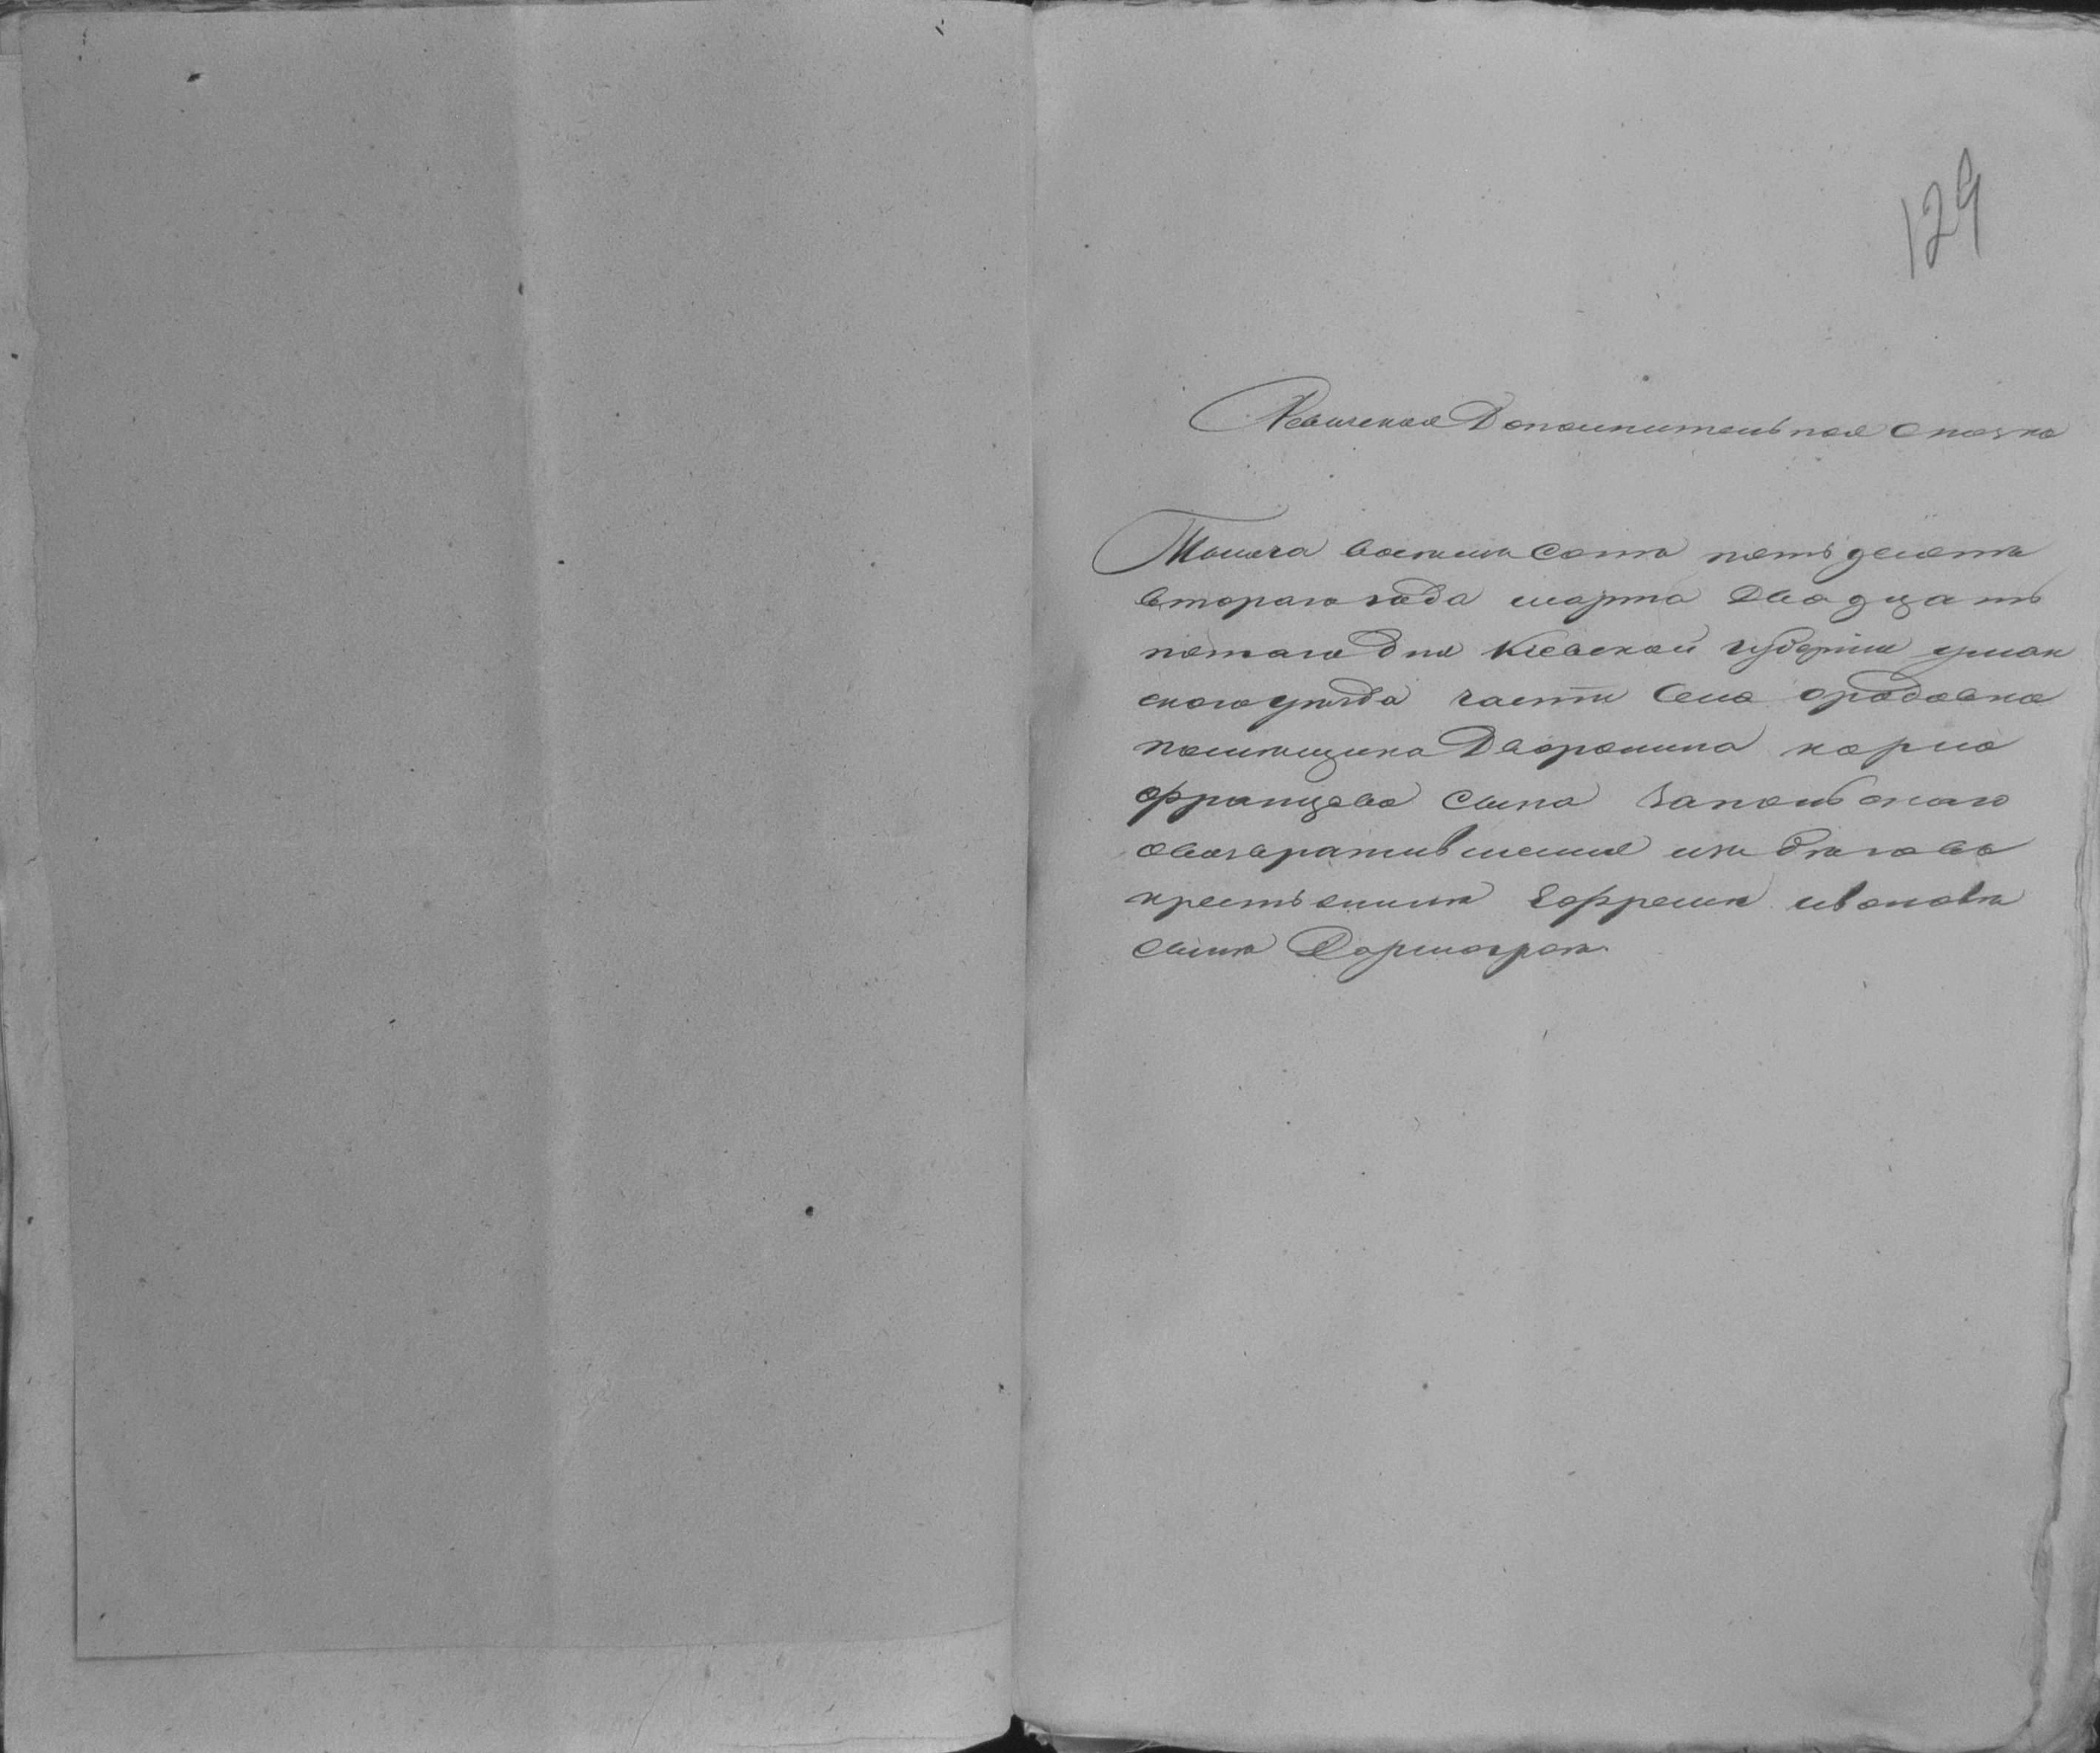 129
Ревизская Дополнительная сказка
Тысяча восемъ Сотъ пятьдесятъ
втораго года марта Двадцать
пятаго дня Кіевской губерніи уман
скаго уѣзда части Села ородовка
помѣщика Дворянина карла
францова Сына Запольскаго
овозвратившемся изъ бѣговъ
крестьянинѣ Ефремѣ ивановѣ
Сынѣ